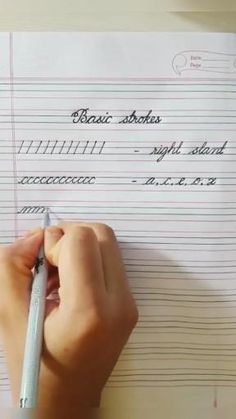 Date
Page
Basic strokes
/////////// - right slant
cccccccccccc - a, c, e, o, z